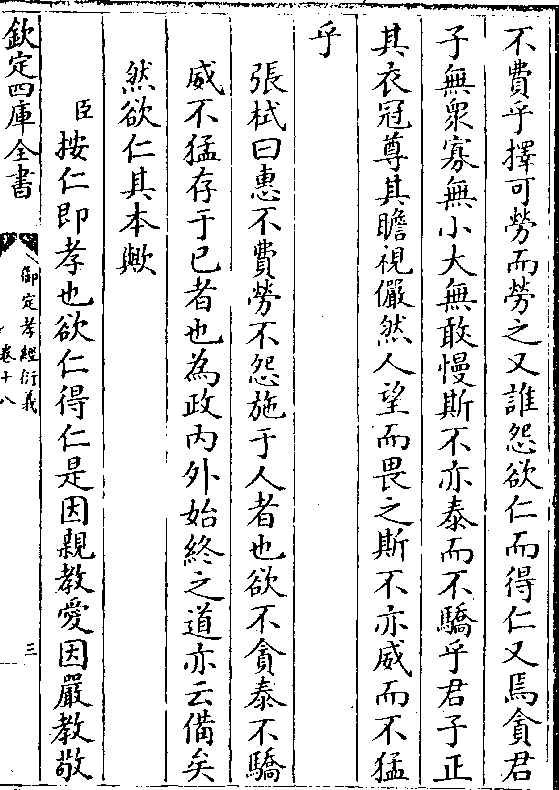 不費乎擇可勞而勞之又誰怨欲仁而得仁又焉貪君
子無衆寡無小大無敢慢斯不亦泰而不驕乎君子正
其衣冠尊其瞻視儼然人望而畏之斯不亦威而不猛
乎
張栻曰惠不費勞不怨施于人者也欲不貪泰不驕
威不猛存于已者也為政内外始終之道亦云備矣
然欲仁其本歟
臣按仁即孝也欲仁得仁是因親教愛因嚴教敬
欽定四庫全書
御定孝經衍義
卷十八
三